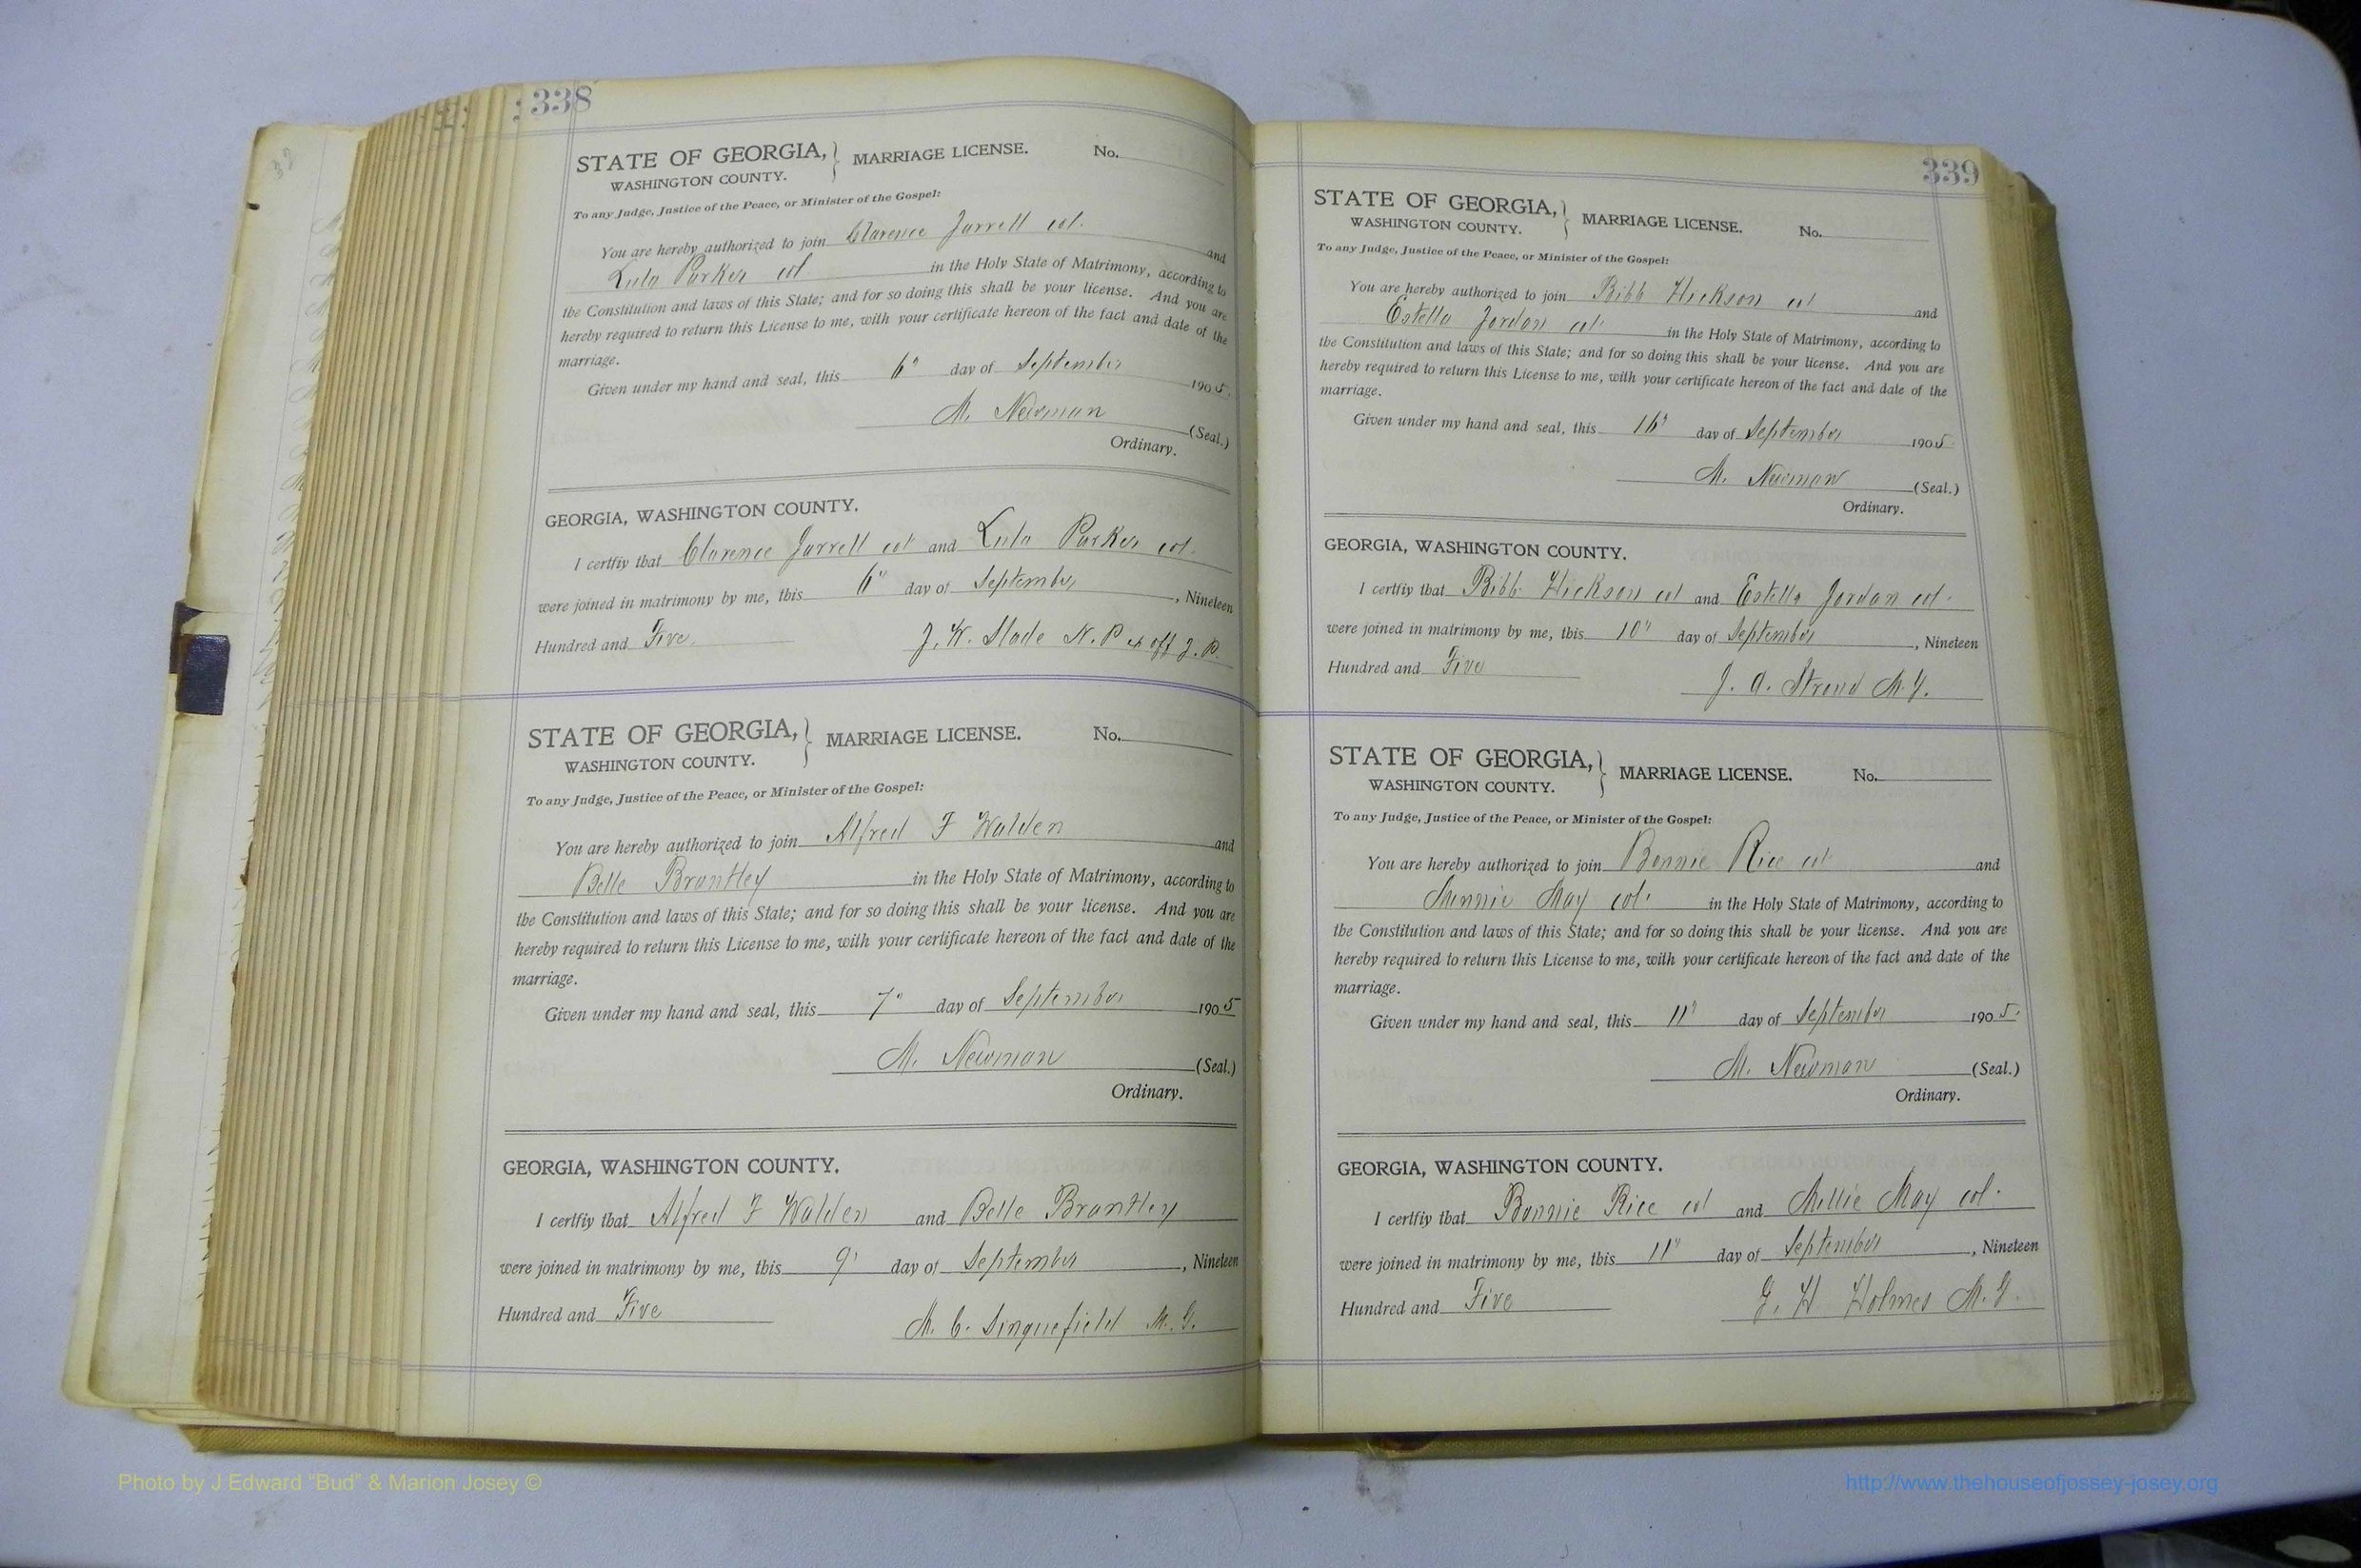 338
STATE OF GEORGIA, } MARRIAGE LICENSE. No.
WASHINGTON COUNTY.
To any Judge, Justice of the Peace, or Minister of the Gospel:
You are hereby authorized to join Clarence Jarrell col. and
Lula Parker col in the Holy State of Matrimony, according to
the Constitution and laws of this State; and for so doing this shall be your license. And you are
hereby required to return this License to me, with your certificate hereon of the fact and date of the
marriage.
Given under my hand and seal, this 6" day of September 1905.
M. Newman (Seal.)
Ordinary.
GEORGIA, WASHINGTON COUNTY.
I certfiy that Clarence Jarrell col and Lula Parker col.
were joined in matrimony by me, this 6" day of September, Nineteen
Hundred and Five. J. W. Slade N. P. ex off J. P.
STATE OF GEORGIA, } MARRIAGE LICENSE. No.
WASHINGTON COUNTY.
To any Judge, Justice of the Peace, or Minister of the Gospel:
You are hereby authorized to join Alfred F Walden and
Belle Brantley in the Holy State of Matrimony, according to
the Constitution and laws of this State; and for so doing this shall be your license. And you are
hereby required to return this License to me, with your certificate hereon of the fact and date of the
marriage.
Given under my hand and seal, this 7" day of September 1905
M. Newman (Seal.)
Ordinary.
GEORGIA, WASHINGTON COUNTY.
I certfiy that Alfred F Walden and Belle Brantley
were joined in matrimony by me, this 9" day of September, Nineteen
Hundred and Five M. C. Sinquefield M. G.
339
STATE OF GEORGIA, } MARRIAGE LICENSE. No.
WASHINGTON COUNTY.
To any Judge, Justice of the Peace, or Minister of the Gospel:
You are hereby authorized to join Bibb Hickson col and
Estella Jordan col. in the Holy State of Matrimony, according to
the Constitution and laws of this State; and for so doing this shall be your license. And you are
hereby required to return this License to me, with your certificate hereon of the fact and date of the
marriage.
Given under my hand and seal, this 16" day of September 1905.
M. Newman (Seal.)
Ordinary.
GEORGIA, WASHINGTON COUNTY.
I certfiy that Bibb Hickson col and Estella Jordan col.
were joined in matrimony by me, this 10" day of September, Nineteen
Hundred and Five J. A. Stroud M. G.
STATE OF GEORGIA, } MARRIAGE LICENSE. No.
WASHINGTON COUNTY.
To any Judge, Justice of the Peace, or Minister of the Gospel:
You are hereby authorized to join Bonnie Rice col and
Minnie May col. in the Holy State of Matrimony, according to
the Constitution and laws of this State; and for so doing this shall be your license. And you are
hereby required to return this License to me, with your certificate hereon of the fact and date of the
marriage.
Given under my hand and seal, this 11" day of September 1905.
M. Newman (Seal.)
Ordinary.
GEORGIA, WASHINGTON COUNTY.
I certfiy that Bonnie Rice col and Millie May col.
were joined in matrimony by me, this 11" day of September, Nineteen
Hundred and Five G. H Holmes M. G.
Photo by J Edward "Bud" & Marion Josey ©
http://www.thehouseofjossey-josey.org